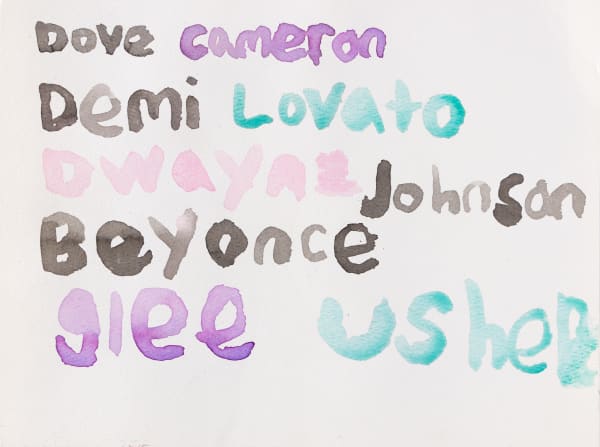 Dove cameron
Demi Lovato
Dwayne Johnson
Beyonce
glee usher